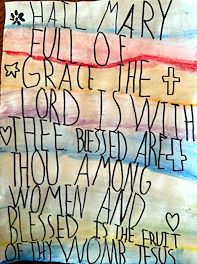 HAIL MARY
FULL OF
GRACE THE
LORD IS WITH
THEE BLESSED ARE
THOU AMONG
WOMEN AND
BLESSED IS THE FRUIT
OF THY WOMB JESUS